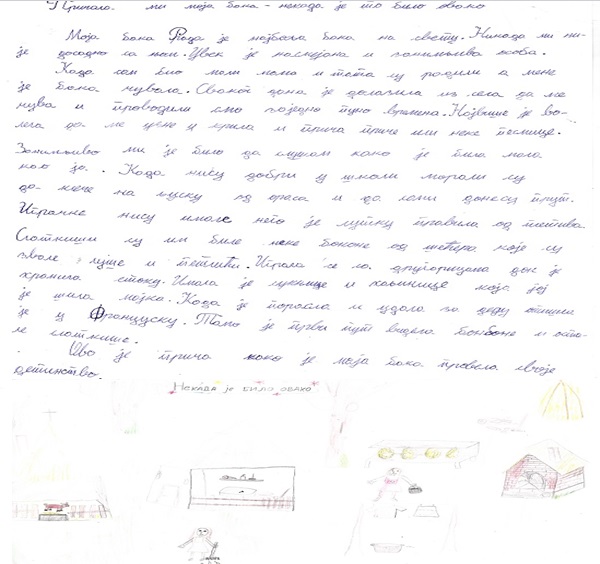 Причала ми моја бака - некада је то било овако
Моја бака Рада је најбоља бака на свету. Никада ми ни-
је досадно са њом. Увек је насмејана и занимљива особа.
Када сам био мали мама и тата су радили а мене
је бака чувала. Сваког дана је долазила из села да ме
чува и проводили смо заједно пуно времена. Највише је во-
лела да ме и прича приче или неке песмице.
Занимљиво ми је било да слушам како је било мала
као ја. Када нису добри у школи морали су
да клече на од ораса и да сами донесу прут.
Играчке нису имале него је лутку правила од
Слаткиши су им биле неке бомбоне од шећера које су
звале и петлићи. Играла се са другарицама док је
хранила стоку. Имала је сукњице и хаљинице која јој
је шила мајка. Када је порасла и удала за деду отишла
је у Француску. Тамо је први пут видела бомбоне и оста-
ле слаткише.
Ово је прича како је моја бака провела своје
детинство.
Некада је било овако